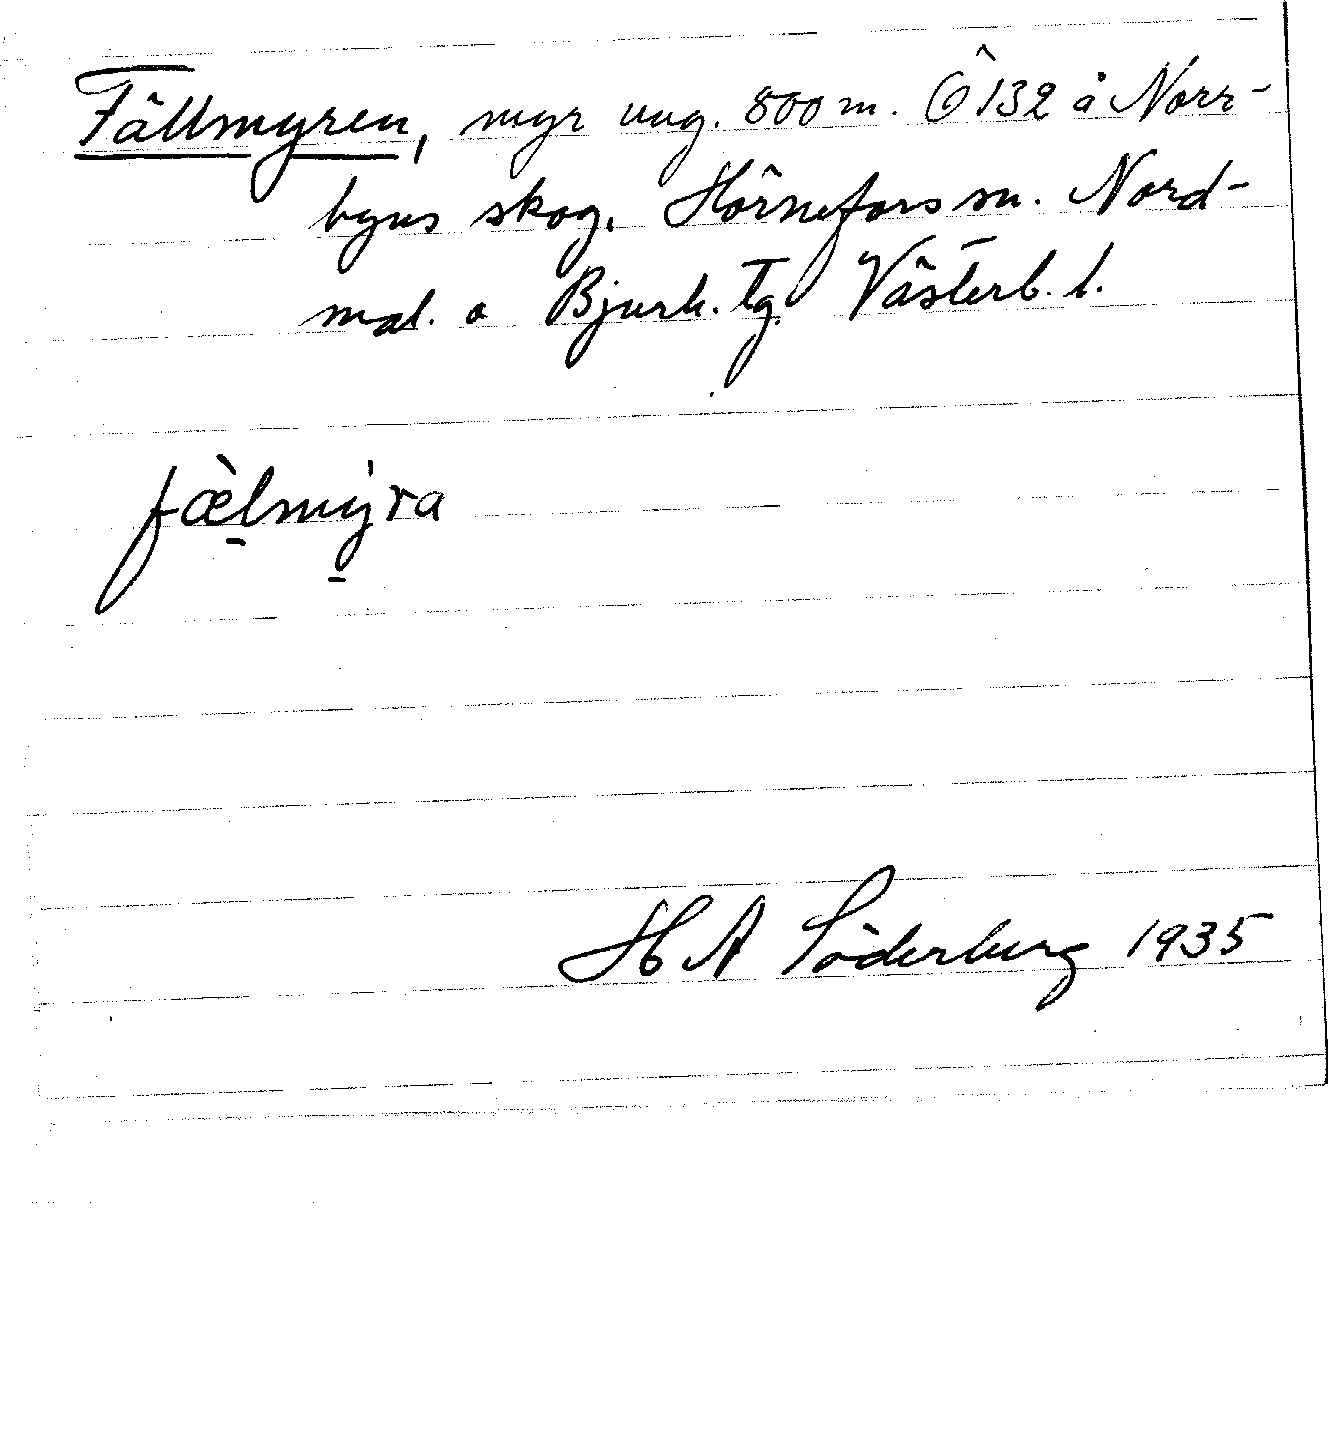 Fällmyren, myr ung. 800 m. Ö 132 å Norr-
byns skog. Hörnefors sn. Nord-
mal. o Bjurh. tg. Västerb. l.
fæ̀lmy̍ra
H A Söderberg 1935